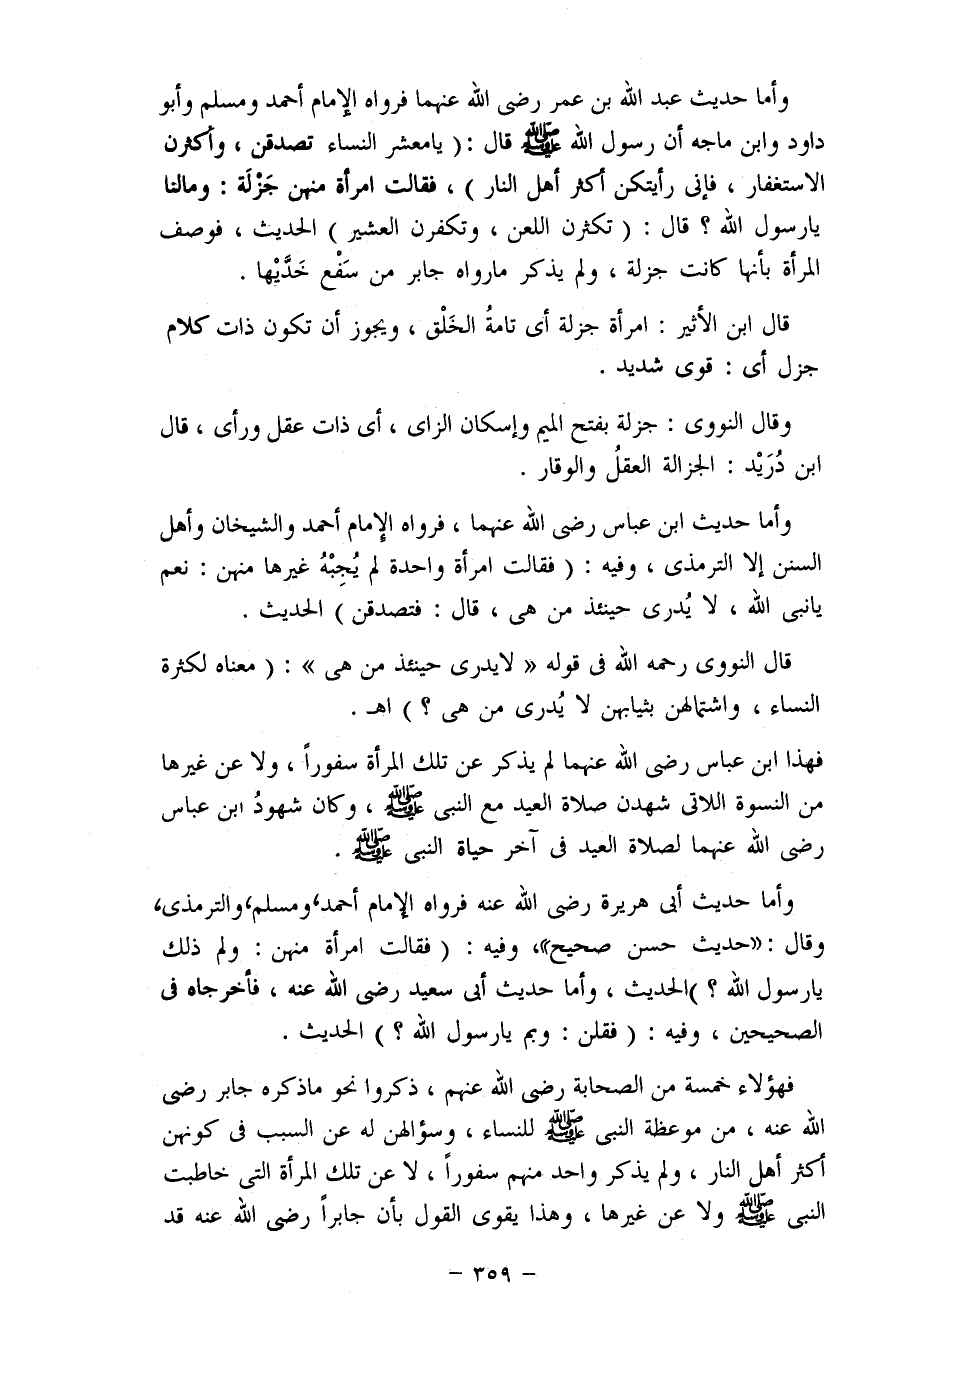 وأما حديث عبد الله بن عمر رضى الله عنهما فرواه الإمام أحمد ومسلم وأبو
داود وابن ماجه أن رسول الله ﷺ قال : ( يامعشر النساء تصدقن ، وأكثرن
الاستغفار ، فإنى رأيتكن أكثر أهل النار ) ، فقالت امرأة منهن جَزْلَة : ومالنا
يارسول الله ؟ قال : ( تكثرن اللعن ، وتكفرن العشير ) الحديث ، فوصف
المرأة بأنها كانت جزلة ، ولم يذكر مارواه جابر من سَفْع خَدَّيْها .
قال ابن الأثير : امرأة جزلة أى تامةُ الخَلْق ، ويجوز أن تكون ذات كلام
جزل أى : قوى شديد .
وقال النووى : جزلة بفتح الميم وإسكان الزاى ، أى ذات عقل ورأى ، قال
ابن دُرَيْد : الجزالة العقلُ والوقار .
وأما حديث ابن عباس رضى الله عنهما ، فرواه الإمام أحمد والشيخان وأهل
السنن إلا الترمذى ، وفيه : ( فقالت امرأة واحدة لم يُجِبْهُ غيرها منهن : نعم
يانبى الله ، لا يُدرى حينئذ من هى ، قال : فتصدقن ) الحديث .
قال النووى رحمه الله فى قوله « لايدرى حينئذ من هى » : ( معناه لكثرة
النساء ، واشتمالهن بثيابهن لا يُدرى من هى ؟ ) اهـ .
فهذا ابن عباس رضى الله عنهما لم يذكر عن تلك المرأة سفوراً ، ولا عن غيرها
من النسوة اللاتى شهدن صلاة العيد مع النبى ﷺ ، وكان شهودُ ابن عباس
رضى الله عنهما لصلاة العيد فى آخر حياة النبى ﷺ .
وأما حديث أبى هريرة رضى الله عنه فرواه الإمام أحمد، ومسلم، والترمذى،
وقال : «حديث حسن صحيح»، وفيه : ( فقالت امرأة منهن : ولم ذلك
يارسول الله ؟ )الحديث ، وأما حديث أبى سعيد رضى الله عنه ، فأخرجاه فى
الصحيحين ، وفيه : ( فقلن : وبم يارسول الله ؟ ) الحديث .
فهؤلاء خمسة من الصحابة رضى الله عنهم ، ذكروا نحو ماذكره جابر رضى
الله عنه ، من موعظة النبى ﷺ للنساء ، وسؤالهن له عن السبب فى كونهن
أكثر أهل النار ، ولم يذكر واحد منهم سفوراً ، لا عن تلك المرأة التى خاطبت
النبى ﷺ ولا عن غيرها ، وهذا يقوى القول بأن جابراً رضى الله عنه قد
– ٣٥٩ –